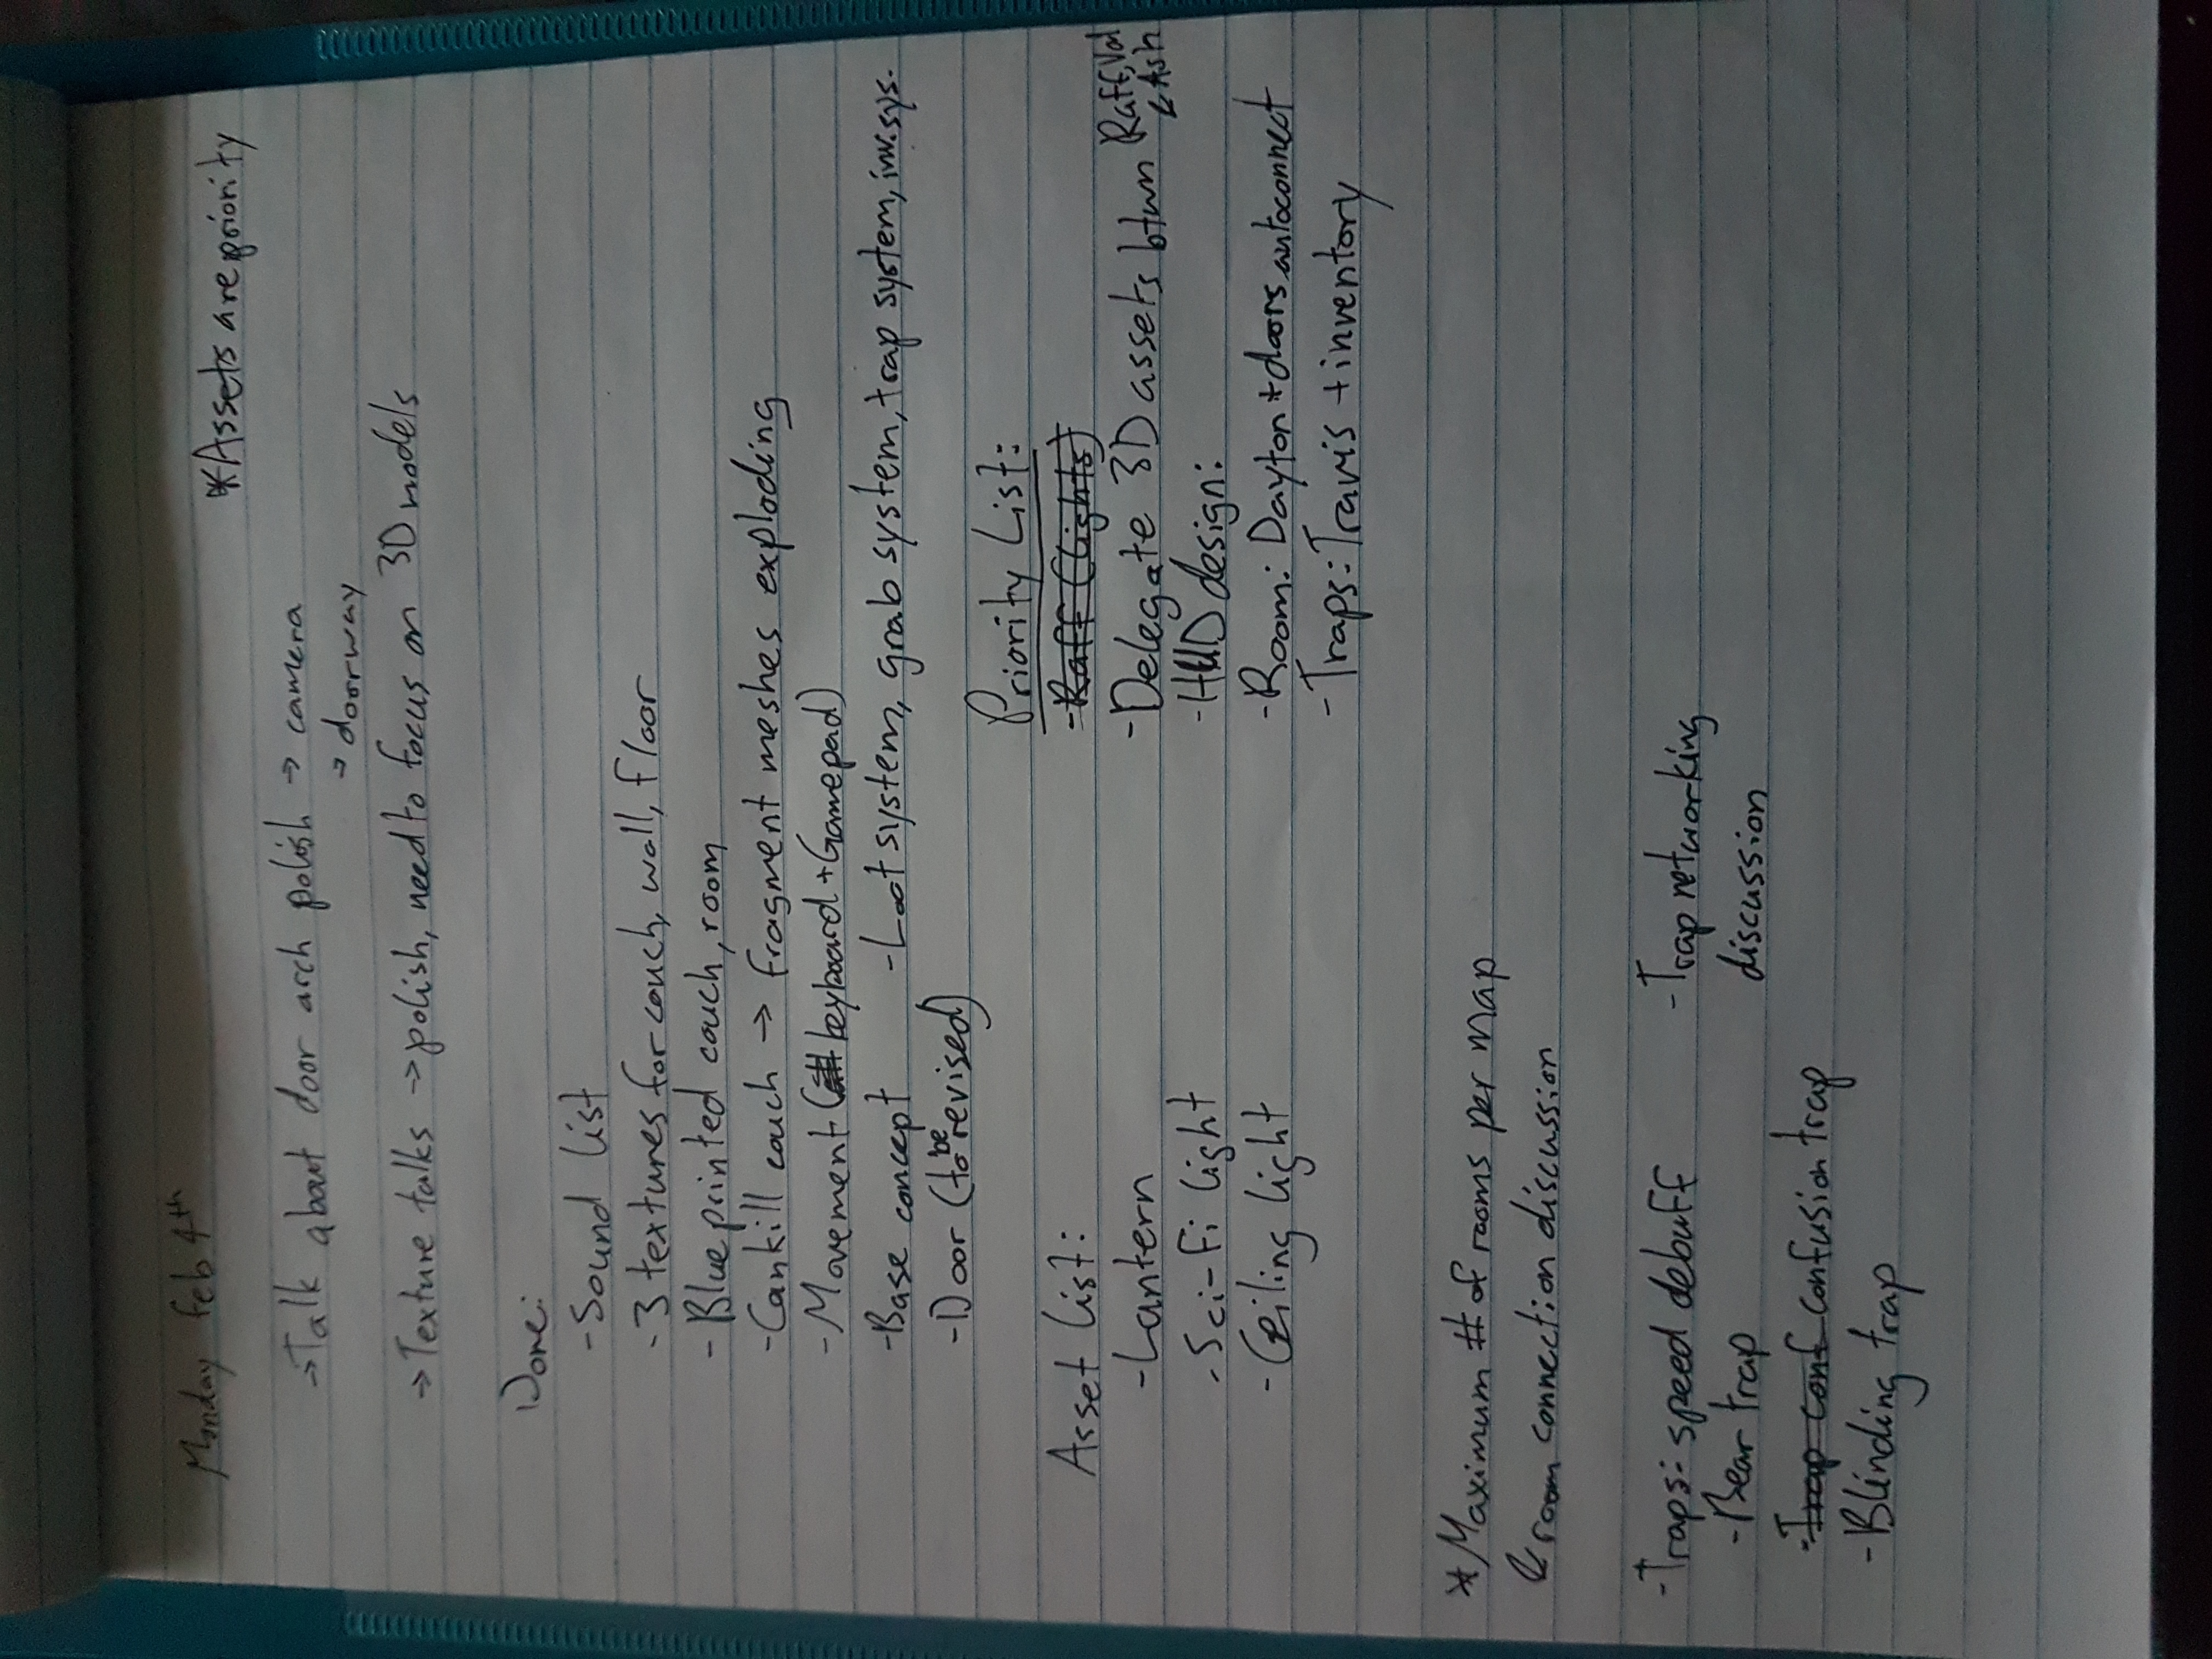 Monday Feb 4th
*Assets are priority
→Talk about door arch polish → camera
→ doorway
→Texture talks →polish, need to focus on 3D models
Done:
-Sound list
-3 textures for couch, wall, floor
-Blueprinted couch, room
-Can kill couch → fragment meshes exploding
-Movement (keyboard + Gamepad)
-Base concept -Loot system, grab system, trap system, inv. sys.
-Door (to be revised)
Priority List:
-Raff (lights)
Asset list:
-Lantern
-Delegate 3D assets btwn Raff, Val & Ash
-Sci-Fi light
-HUD design:
-Ceiling light
-Room: Dayton + doors autoconnect
-Traps: Travis + inventory
*Maximum # of rooms per map
& room connection discussion
-Traps: speed debuff
-Bear trap
-Trap conf confusion trap
-Blinding trap
-Trap networking
discussion